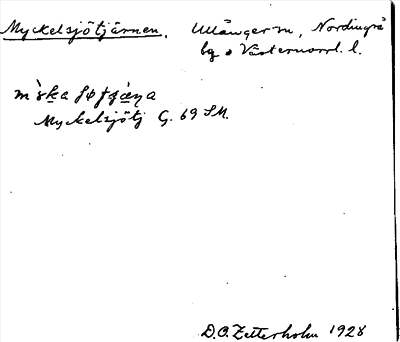 Myckelsjötjärnen. Ullånger sn, Nordingrå
Västernorrl. l.
Myckelsjötj G. 69 SM.
D.O. Zetterholm 1928